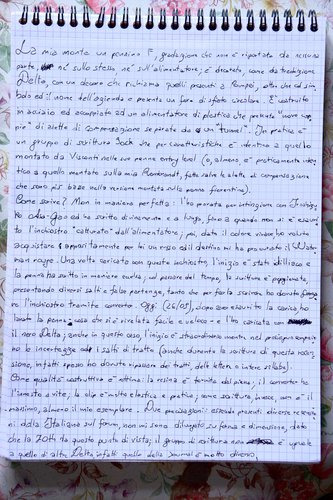 La mia monta un pennino F, gradazione che non è riportata da nessuna
parte, né sullo stesso né sull'alimentatore; è decorato, come da tradizione
Delta, con un decoro che richiama quelli presenti a Pompei, oltre che ad sim
bolo ed il nome dell'azienda e presenta un foro di sfiato circolare. È costruito
in acciaio ed accoppiato ad un alimentatore di plastica che presenta nove cop
pie di alette di compensazione separate da un "tunnel". In pratica è
un gruppo di scrittura Bock che per caratteristiche è identico a quello
montato da Visconti nelle sue penne entry level (o, almeno, è praticamente iden
tico a quello montato sulla mia Rembrandt, fatta salva le alette di compensazione
che sono più basse nella versione montata sulla penna fiorentina).
Come scrive? Non in maniera perfetta: l'ho provata per intinzione con
ho ed ho scritto divinamente e a lungo, fino a quando non si è esauri
to l'inchiostro "catturato" dall'alimentatore; poi, dato il colore vivace ho voluto
acquistare appositamente per lei un rosso ed il destino mi ha procurato il Water
man rouge. Una volta caricato con questo inchiostro, l'inizio è stato difficile e
la penna ha scritto in maniera svelta; col passare del tempo, la scrittura è peggiorata,
presentando diversi salti e false partenze, tanto che per farla scrivere ho dovuto
re l'inchiostro tramite converter. Oggi (26/05), dopo aver esaurito la carica ho
lavato la penna, cosa che si è rivelata facile e veloce e l'ho caricata con
il nero Delta; anche in questo caso, l'inizio è straordinario mentre nel prosieguo compaio
no le incertezze ed i salti di tratto (anche durante la scrittura di questa recen
sione, infatti spesso ho dovuto ripassare dei tratti, delle lettere o intere sillabe).
Come qualità costruttiva è ottima: la resina è tornita dal pieno, il converter ha
l'innesto a vite; la clip è molto elastica e pratica; come scrittura, invece, non è il
massimo, almeno il mio esemplare. Due precisazioni: essendo presenti diverse recensio
ni della Italiana sul forum, non mi sono dilungato su forma e dimensione, dato
che la 70th da questo punto di vista; il gruppo di scrittura non è uguale
a quello di altre Delta, infatti quello della Journal è molto diverso.